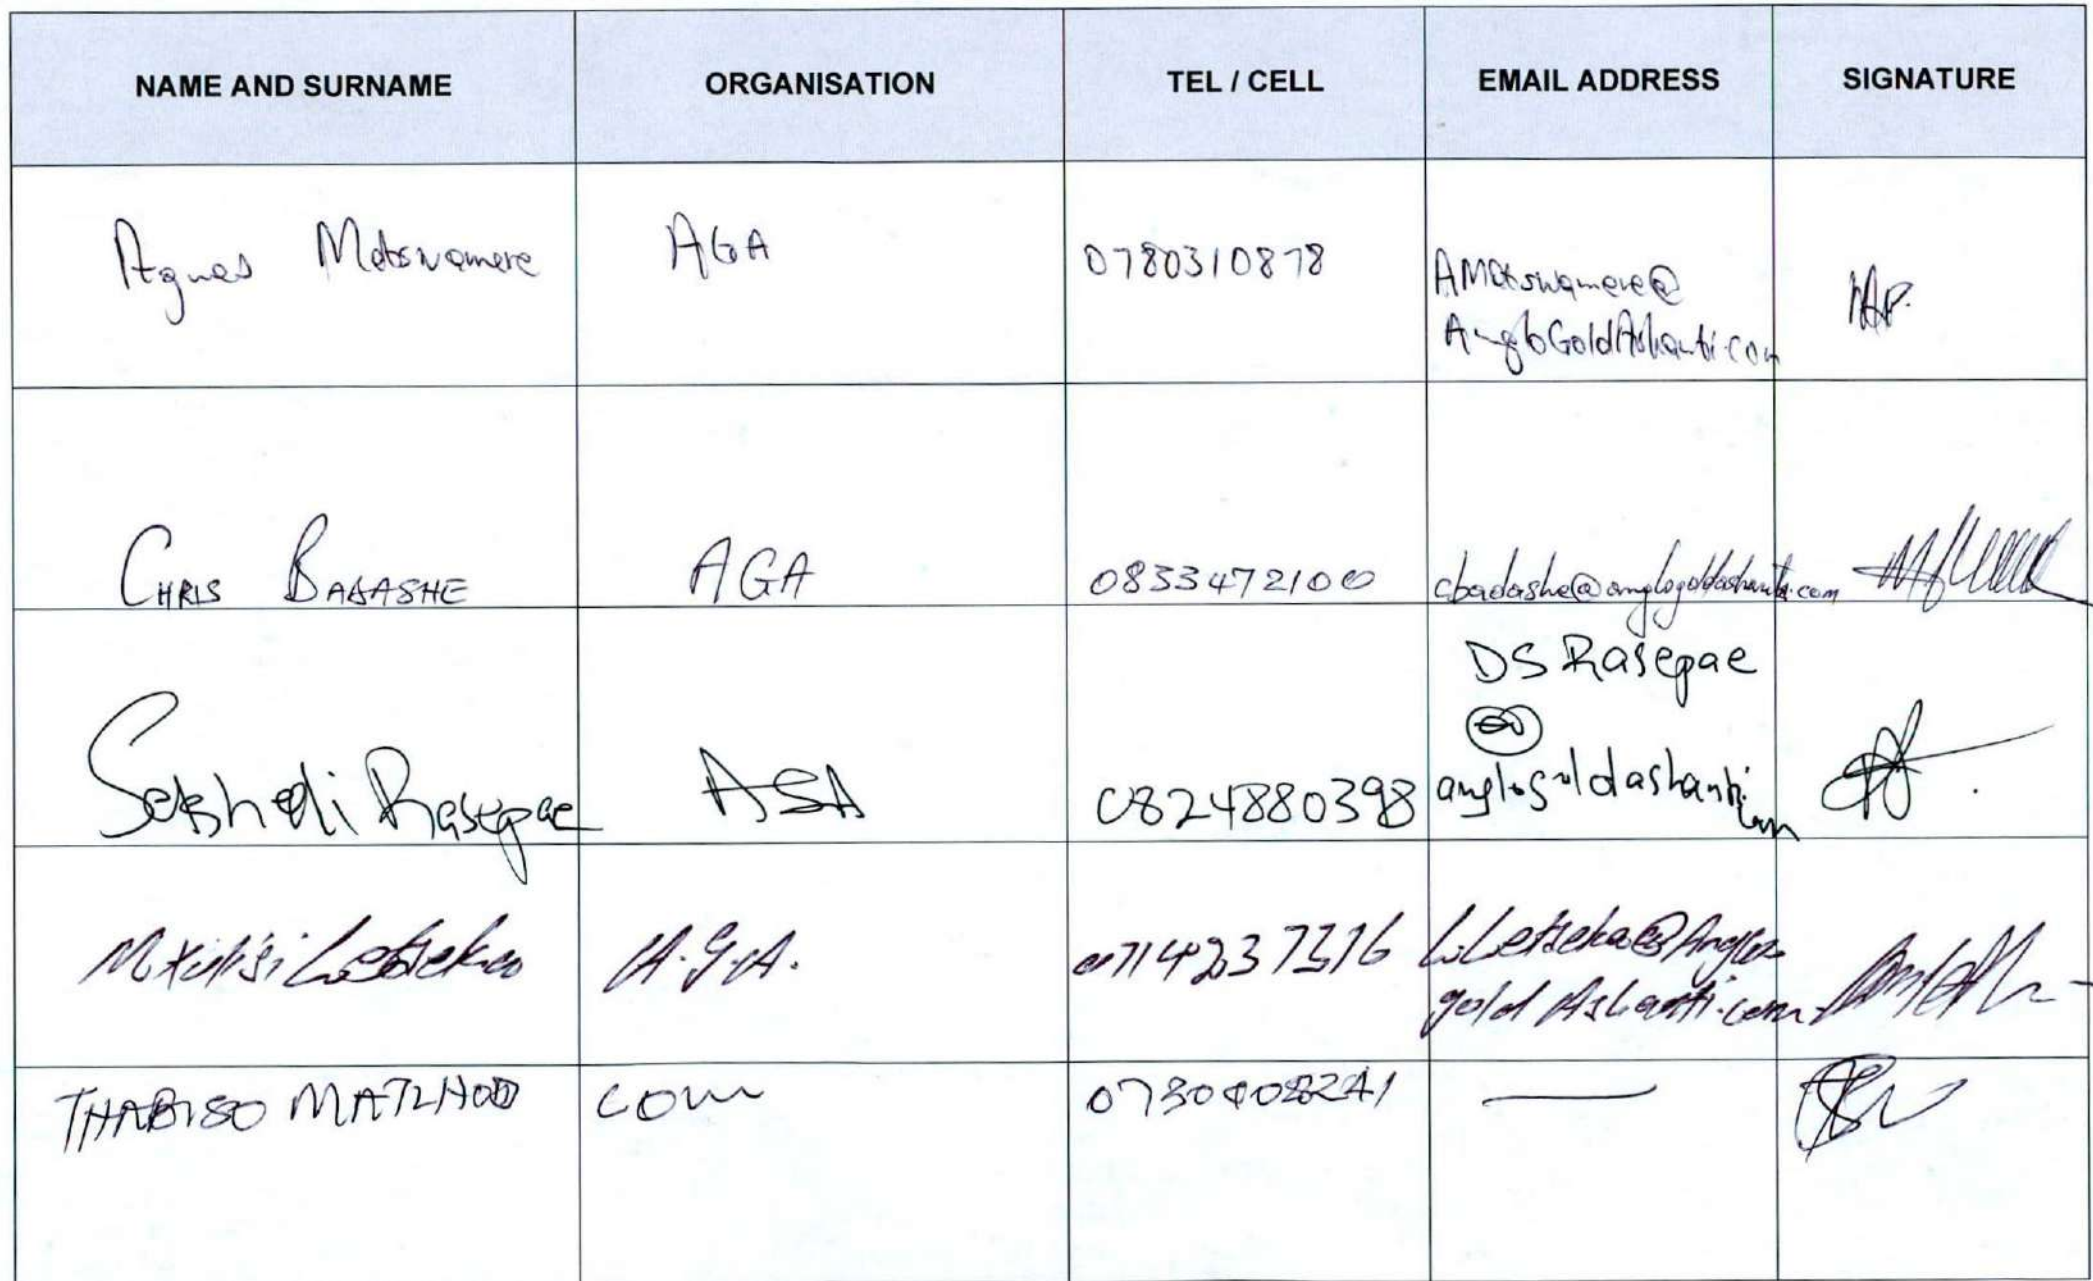 NAME AND SURNAME ORGANISATION TEL / CELL EMAIL ADDRESS SIGNATURE
Agnes Motswamere AGA 0780310878 AMotswamere@
AngloGoldAshanti.com
CHRIS BADASHE AGA 0833472100 cbadashe@anglogoldashanti.com
DS Rasepae
@
Sekshedi Rasepae ASA 0824880398 anglogoldashanti.
com
Mxolisi Letseka A.G.A. 0714237316 L.Letseka@Anglo
gold Ashanti.com
THABISO com —